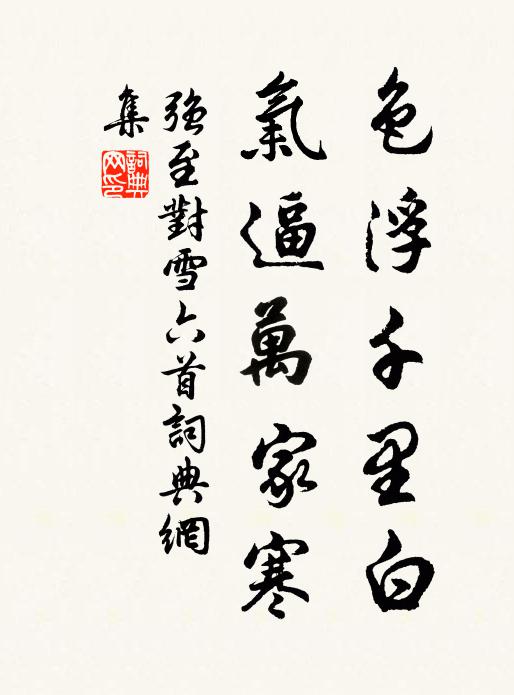 色浮千里白
氣逼萬家寒
強至對雪六首詞典網
集
詞典
网印